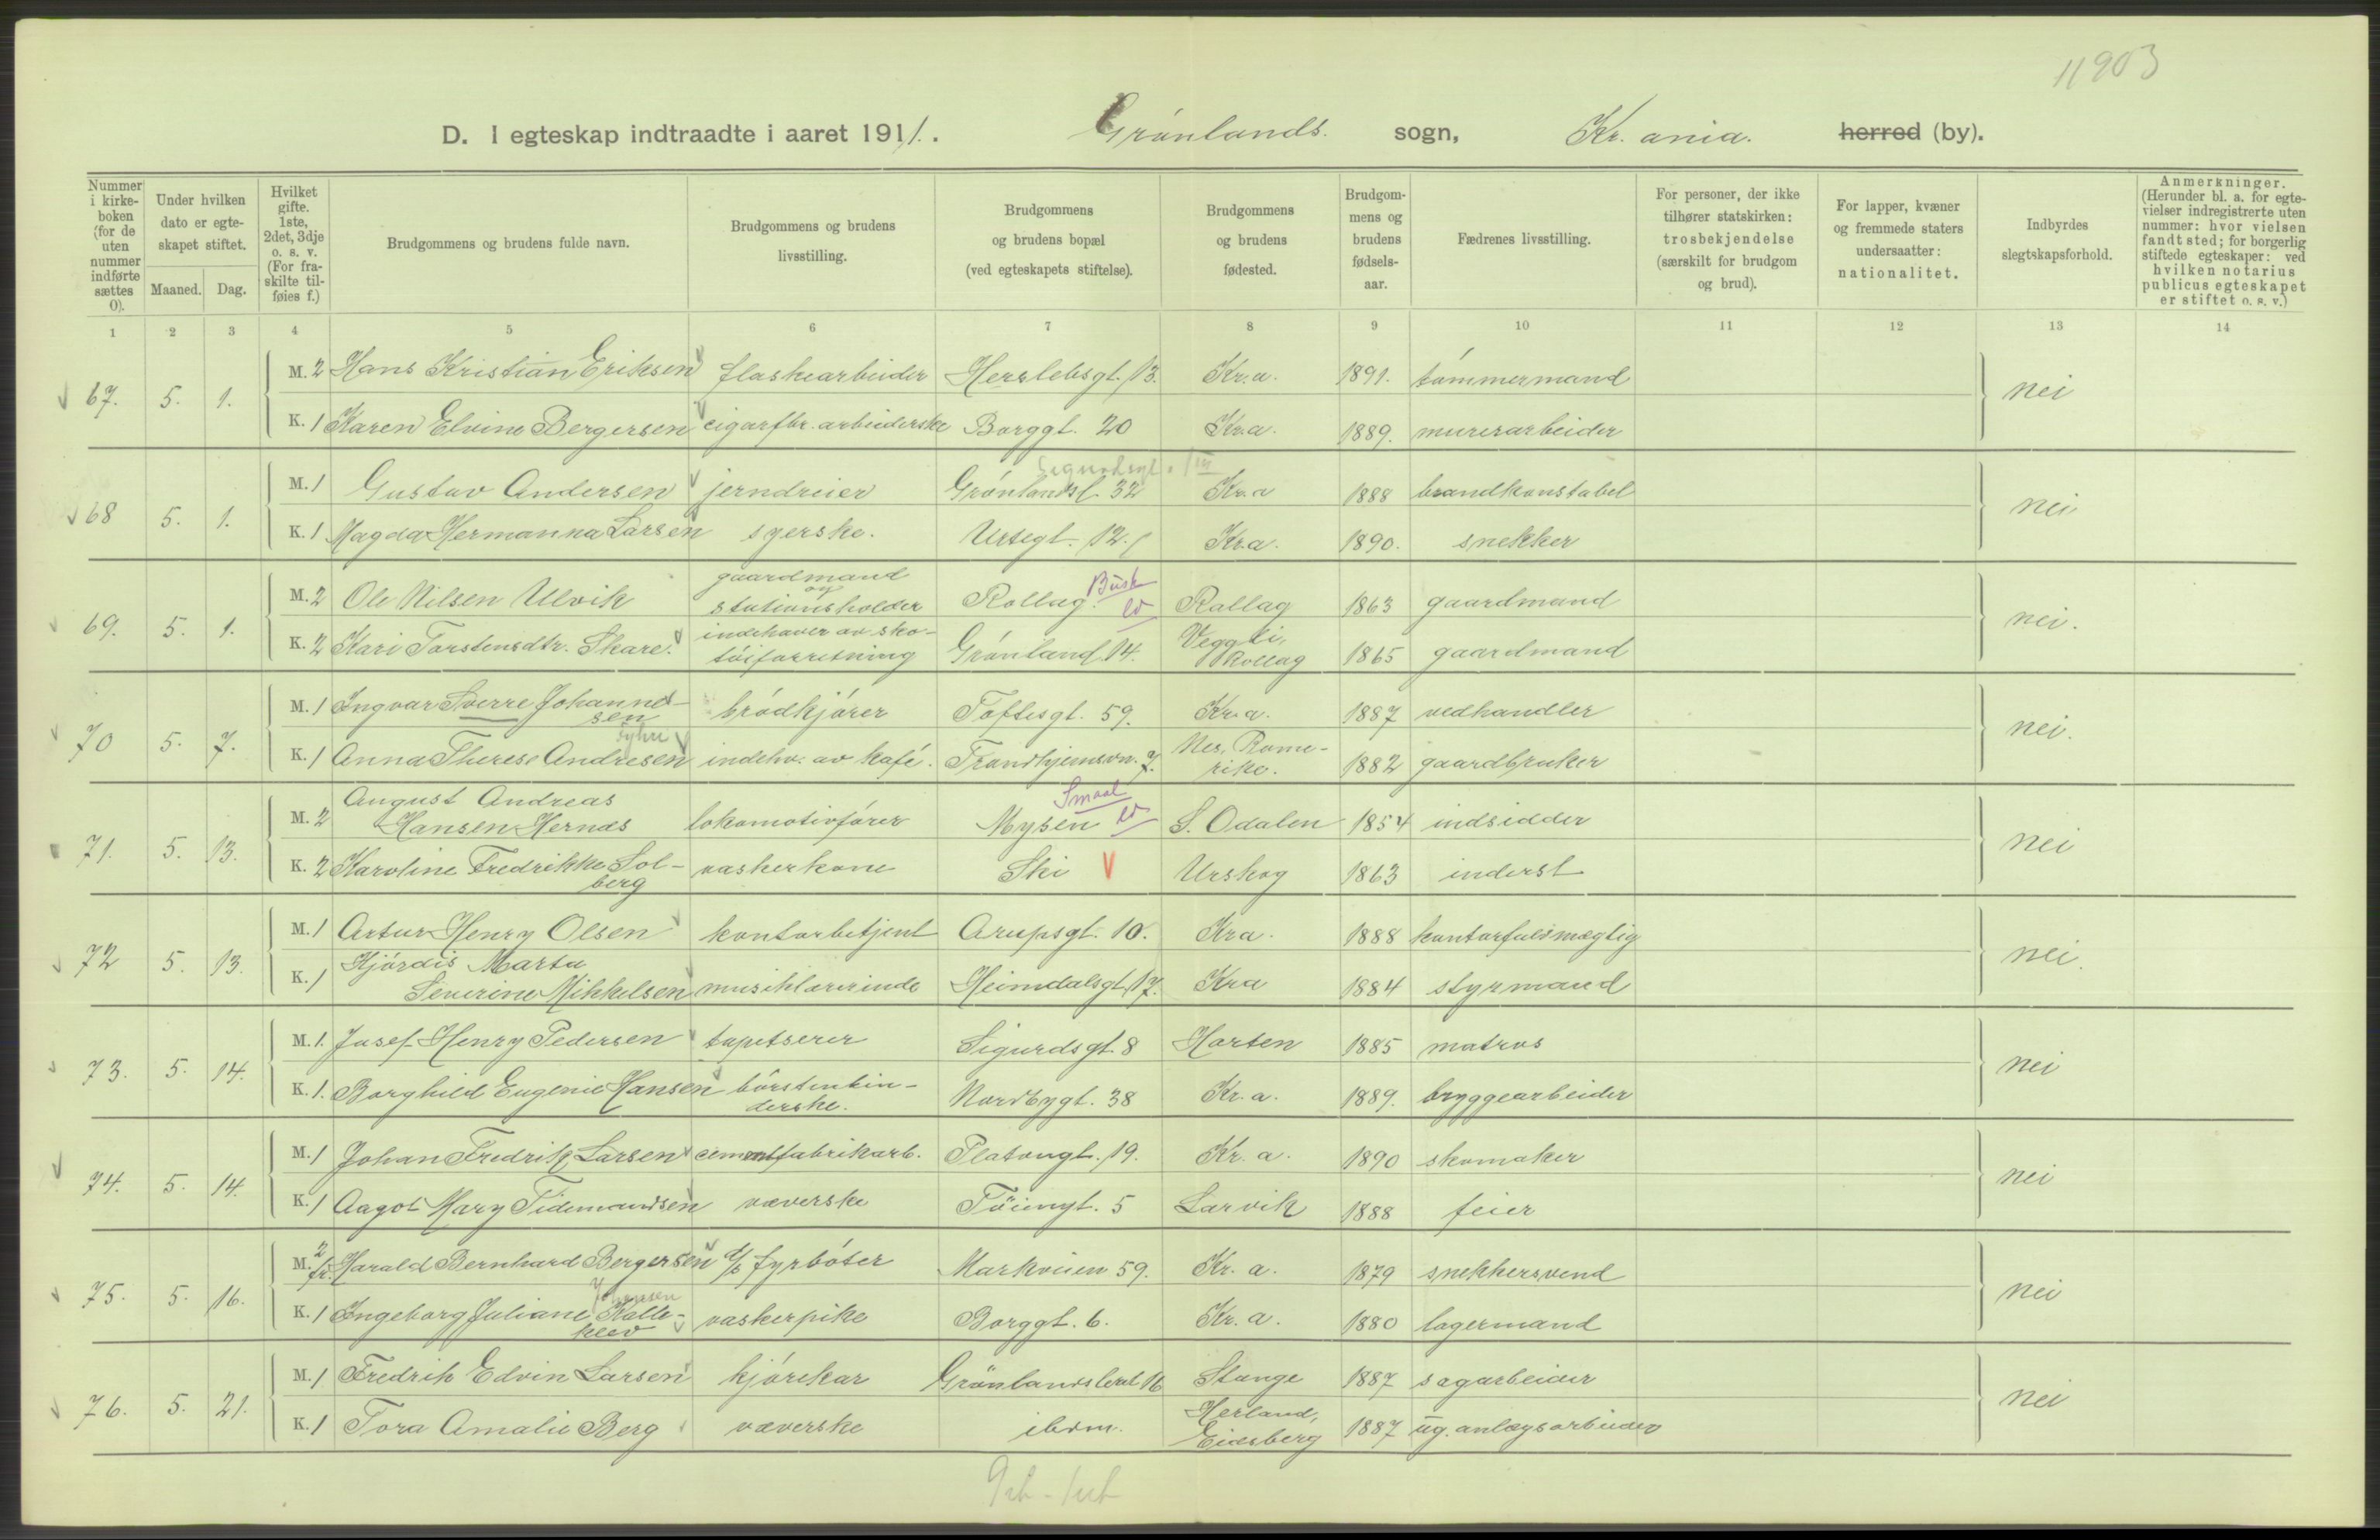 11903
D. I egteskap indtraadte i aaret 1911. Grønlands sogn, Kr.ania. herred (by).
Nummer i kirkeboken (for de uten nummer indførte sættes 0).
Under hvilken dato er egteskapet stiftet.
Maaned. Dag.
Hvilket gifte. 1ste, 2det, 3dje o. s. v. (For fraskilte tilføies f.)
Brudgommens og brudens fulde navn.
Brudgommens og brudens livsstilling.
Brudgommens og brudens bopæl (ved egteskapets stiftelse).
Brudgommens og brudens fødested.
Brudgommens og brudens fødselsaar.
Fædrenes livsstilling.
For personer, der ikke tilhører statskirken: trosbekjendelse (særskilt for brudgom og brud).
For lapper, kvæner og fremmede staters undersaatter: nationalitet.
Indbyrdes slegtskapsforhold.
Anmerkninger. (Herunder bl. a. for egtevielser indregistrerte uten nummer: hvor vielsen fandt sted; for borgerlig stiftede egteskaper: ved hvilken notarius publicus egteskapet er stiftet o. s. v.)
1 2 3 4 5 6 7 8 9 10 11 12 13 14
67. 5. 1. M. 2 Hans Kristian Eriksen flaskearbeider Herslebsgt. 13. Kr.a. 1891. tømmermand nei
K. 1 Karen Elvine Bergersen cigarfbr. arbeiderske Borggt. 20 Kr.a. 1889. murerarbeider
Sigurdsgt.
68 5. 1. M. 1 Gustav Andersen jerndreier Grønlandsl. 32 Kr.a 1888 brandkonstabel nei
K. 1 Magda Hermanna Larsen syerske. Urtegt. 12. Kr.a. 1890. snekker
69. 5. 1. M. 2 Ole Nilsen Ulvik gaardmand og stationsholder Rollag. Busk Rollag 1863 gaardmand nei.
K. 2 Kari Torstensdtr. Skare. indehaver av skotøiforretning Grønland 14. Veggli, Rollag 1865 gaardmand
70 5. 7. M. 1 Ingvar Sverre Johannessen brødkjører Toftesgt. 59. Kr.a. 1887 vedhandler nei.
K. 1 Anna Therese Andresen indehv. av kafé. Trondhjemsvn. 7. Nes, Romerike. 1882 gaardbruker
71. 5. 13. M. 2 August Andreas Hansen Hernæs lokomotivfører Mysen Smaal S. Odalen 1854 indsidder nei
K. 2 Karoline Fredrikke Solberg vaskerkone Ski V Urskog 1863 inderst
72 5. 13. M. 1 Artur Henry Olsen kontorbetjent Arupsgt. 10. Kra. 1888 kontorfuldmægtig nei.
K. 1 Hjørdis Marta Severine Mikkelsen musiklærerinde Heimdalsgt. 17. Kra 1884 styrmand
73. 5. 14. M. 1. Josef Henry Pedersen tapetserer Sigurdsgt. 8 Horten 1885 matros nei
K. 1. Borghild Eugenie Hansen børstenbinderske. Nordbygt. 38 Kr.a. 1889. bryggearbeider
74. 5. 14. M. 1 Johan Fredrik Larsen cementfabrikarb. Platougt. 19. Kr.a. 1890 skomaker nei
K. 1 Aagot Mary Tidemandsen væverske Tøiengt. 5 Larvik 1888 feier
75. 5. 16. M. 2 fr. Harald Bernhard Bergersen d/s fyrbøter Markveien 59. Kr.a. 1879 snekkersvend nei
Johansen
K. 1 Ingeborg Juliane Kalleklev vaskerpike Borggt. 6. Kr.a. 1880 lagermand
76. 5. 21. M. 1 Fredrik Edvin Larsen kjørekar Grønlandsleret 16 Stange 1887 sagarbeider nei
K. 1 Tora Amalie Berg væverske ibidm. Herland, Eidsberg 1887 ug. anlægsarbeider